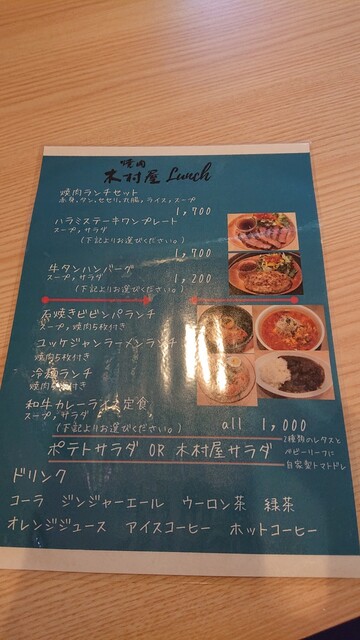 焼肉
木村屋 Lunch
焼肉ランチセット
赤身,タン,セセリ,丸腸,ライス,スープ
1,700
ハラミステーキワンプレート
スープ,サラダ
(下記よりお選びください。)
1,700
牛タンハンバーグ
スープ,サラダ
1,200
(下記よりお選びください。)
石焼きビビンバランチ
スープ,焼肉5枚付き
ユッケジャンラーメンランチ
焼肉5枚付き
冷麺ランチ
焼肉5枚付き
和牛カレーライス定食
スープ,サラダ
(下記よりお選びください。)
all 1,000
ポテトサラダ OR 木村屋サラダ
2種類のレタスと
ベビーリーフに
自家製トマトドレ
ドリンク
コーラ ジンジャーエール ウーロン茶 緑茶
オレンジジュース アイスコーヒー ホットコーヒー